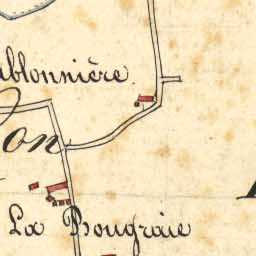 ablonnière
on
La Bougraie